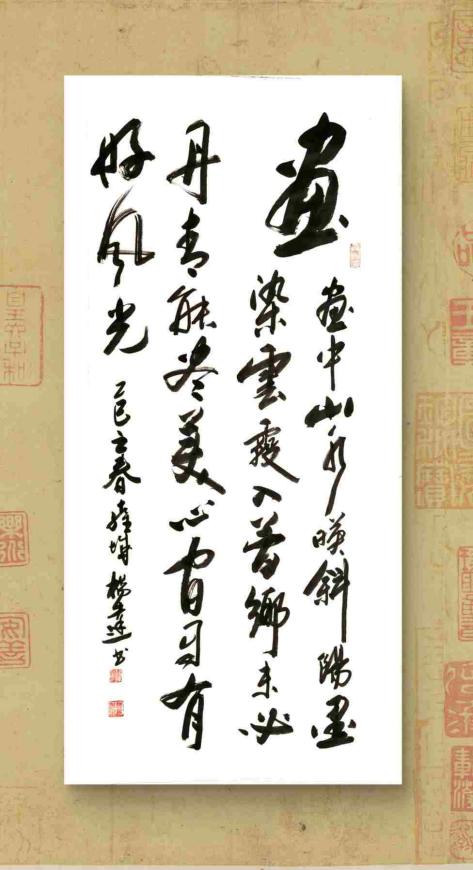 畫
畫中山水映斜陽墨
染雲霞入夢鄉未必
丹青能尽美心窗自有
好風光
乙巳立春 楊 书